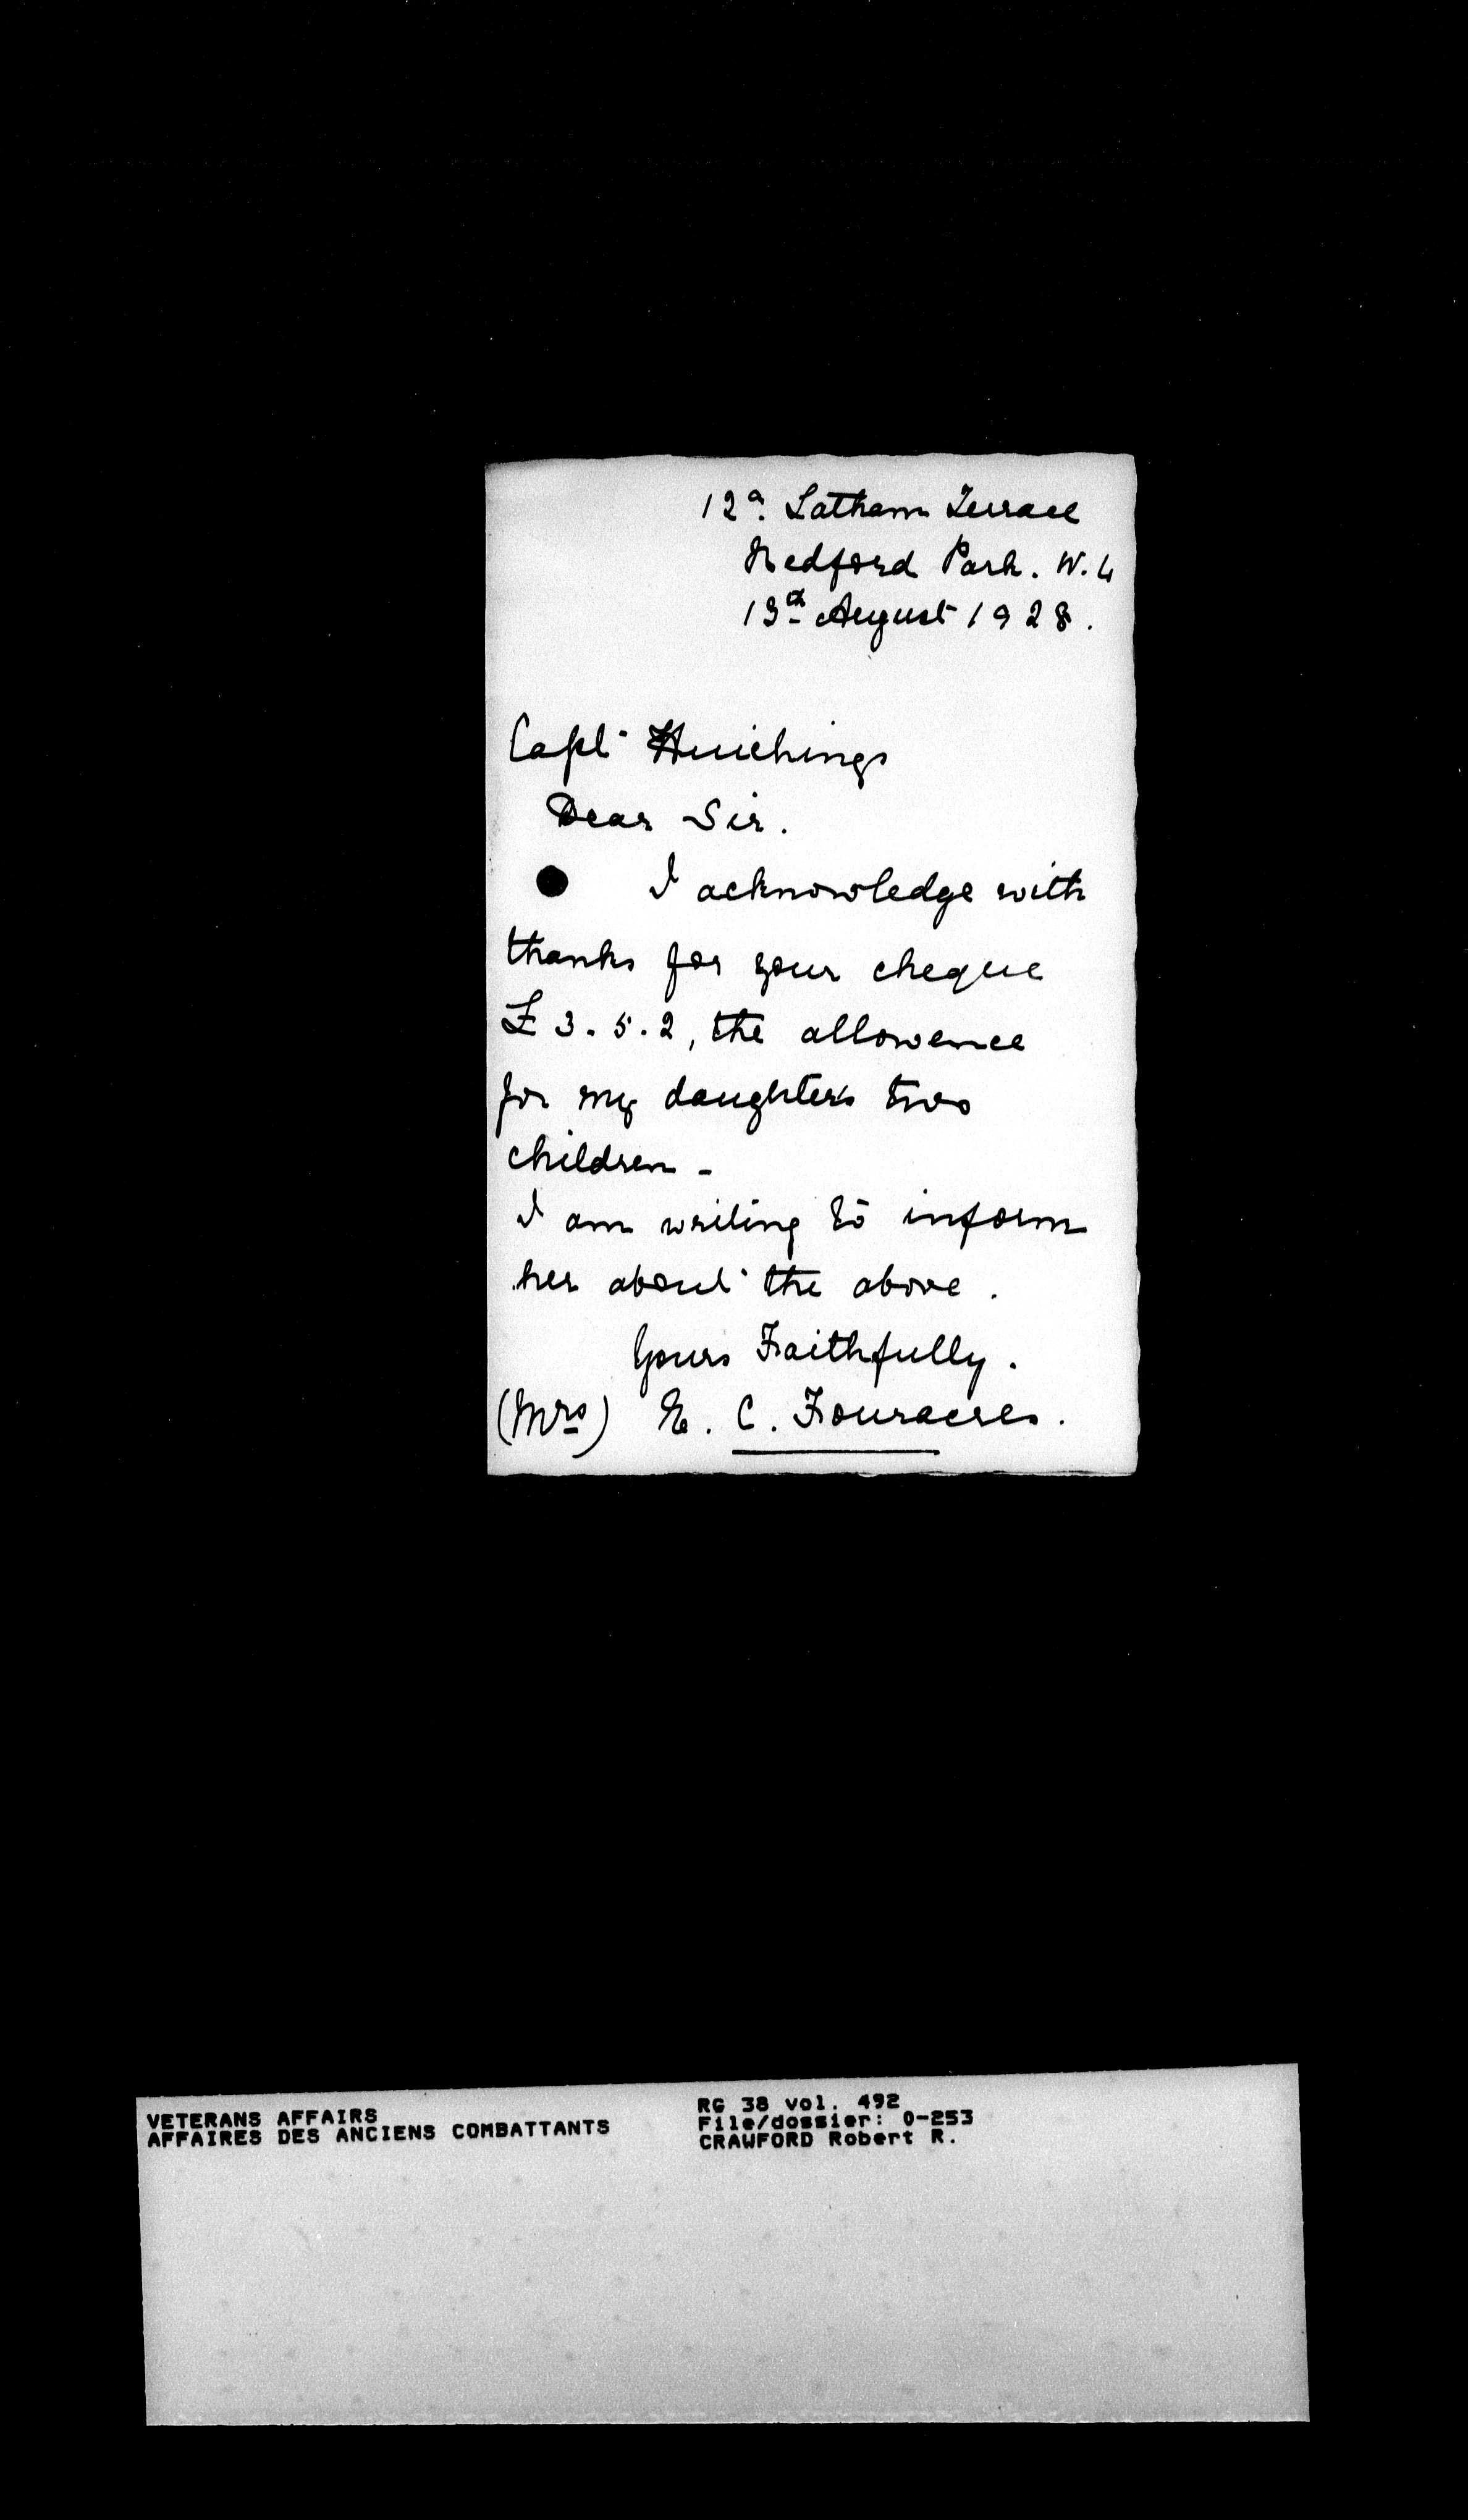 12a. Latham Terrace
Bedford Park. W.4
13th August 1928.
Capt. Hutchings
Dear Sir.
I acknowledge with
thanks for your cheque
£3.5.2, the allowence
for my daughters two
children -
I am writing to inform
her about the above.
Yours Faithfully.
(Mrs) E. C. Fouracres.
VETERANS AFFAIRS
AFFAIRES DES ANCIENS COMBATTANTS
RG 38 vol. 492
File/dossier: 0-253
CRAWFORD Robert R.